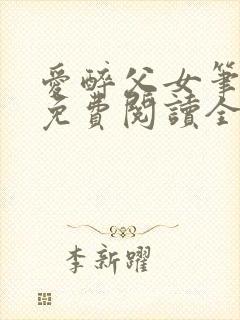 愛醉父女筆
免費閱讀全
李新躍